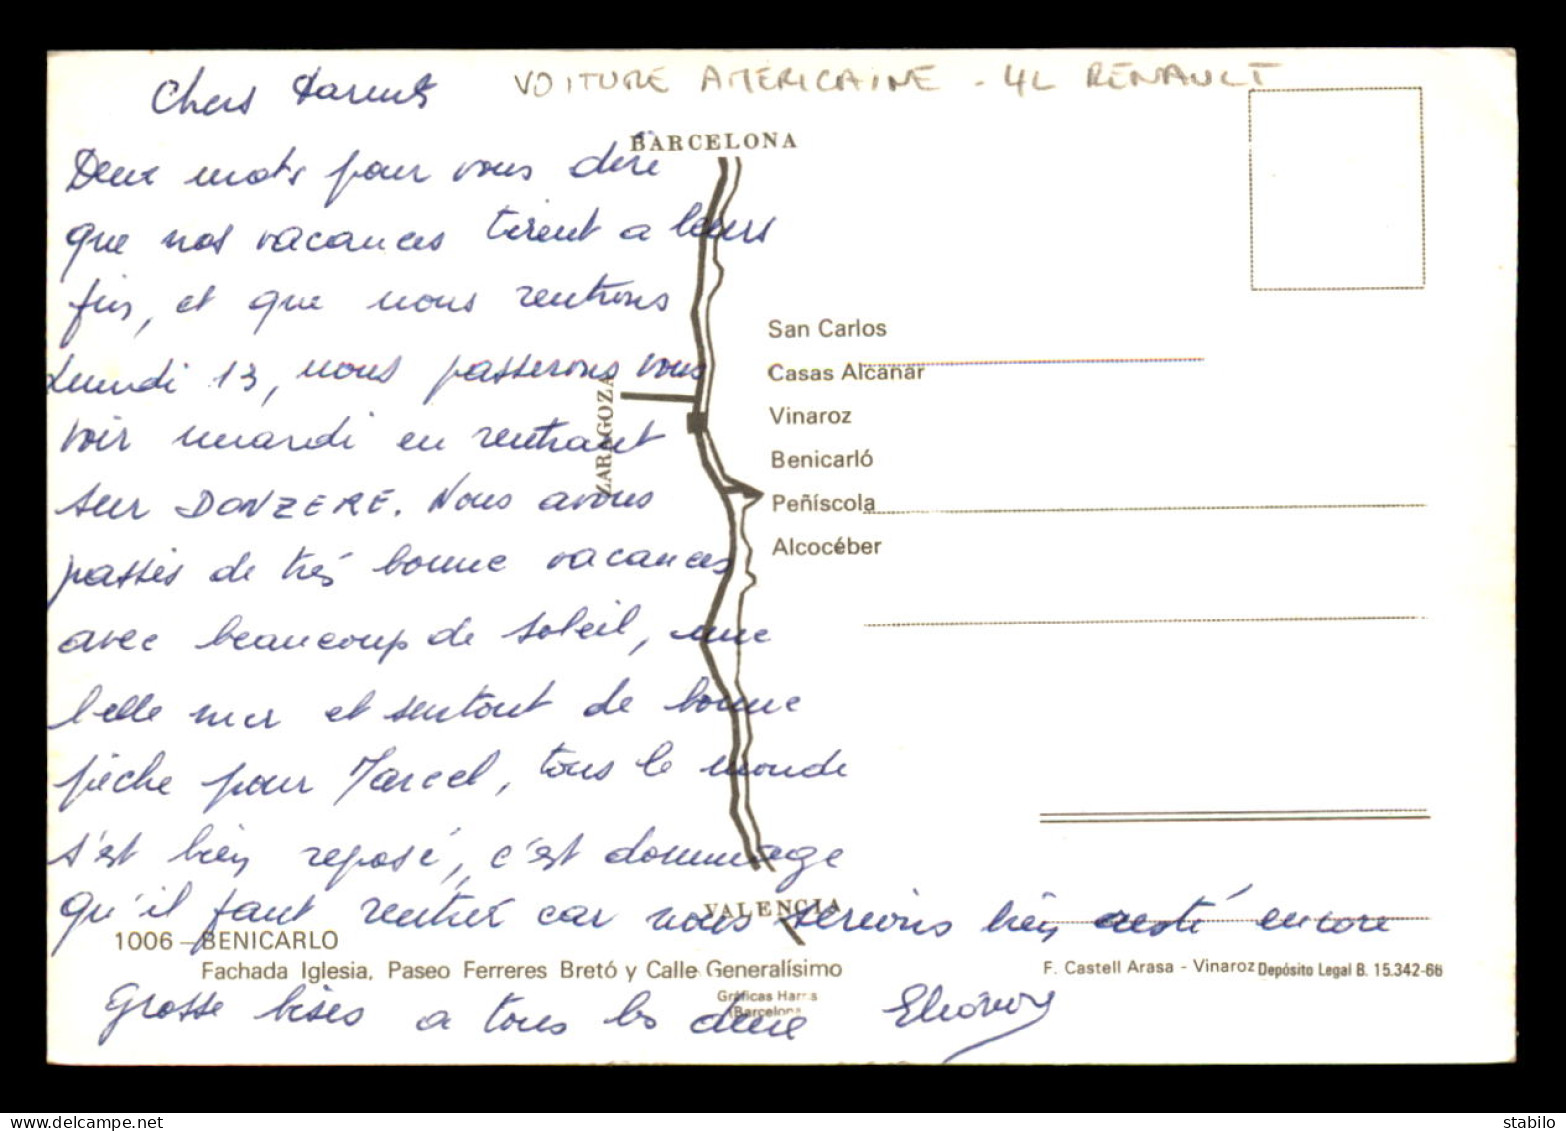 VOITURE AMERICAINE - 4L RENAULT
Chers Parents
Deux mots pour vous dire
que nos vacances tirent a leurs
fin, et que nous rentrons
Lundi 13, nous passerons vous
voir mardi en rentrant
sur DONZERE. Nous avons
passés de très bonne vacances
avec beaucoup de soleil, une
belle mer et surtout de bonne
pêche pour Marcel, tous le monde
s'est bien reposé, c'est dommage
qu'il faut rentrer car nous serions bien resté encore
Grosse bises a tous les deux
BARCELONA
ZARAGOZA
VALENCIA
San Carlos
Casas Alcanar
Vinaroz
Benicarló
Peñíscola
Alcocéber
1006 – BENICARLO
Fachada Iglesia, Paseo Ferreres Bretó y Calle Generalísimo
Gráficas Harris
(Barcelona)
F. Castell Arasa - Vinaroz
Depósito Legal B. 15.342-66
delcampe.net
stabilo